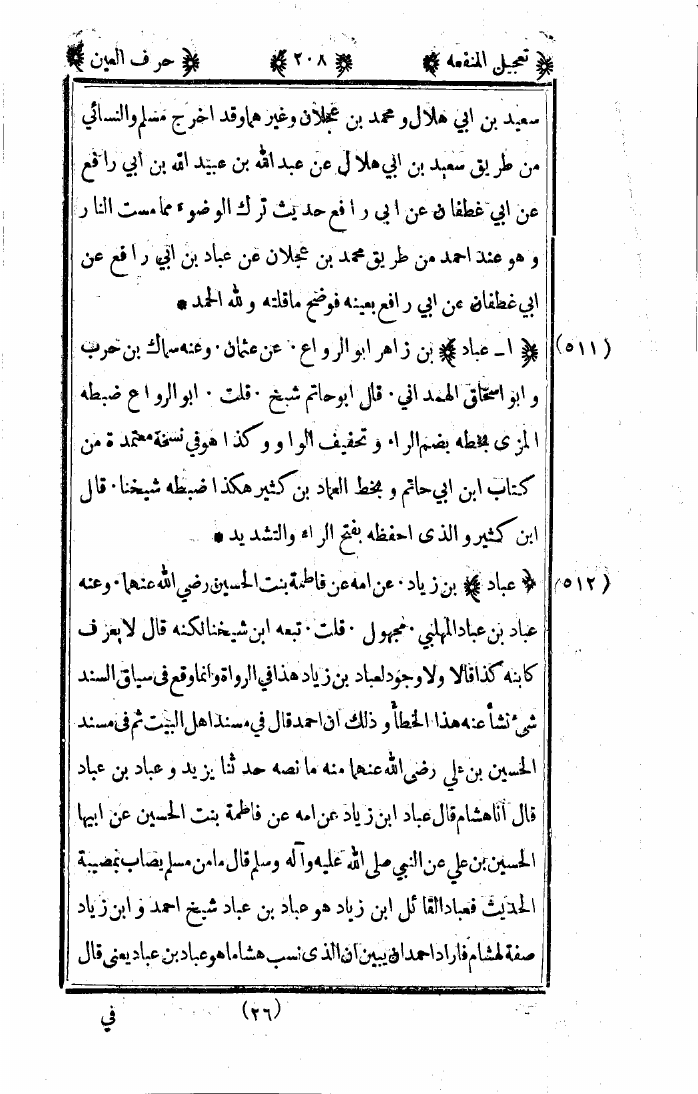 ﴿ تعجيل المنفعه ﴾ ﴿ ٢٠٨ ﴾ ﴿ حرف العين ﴾
سعيد بن ابي هلال و محمد بن عجلان وغيرهما وقد اخرج مسلم والنسائي
من طريق سعيد بن ابي هلال عن عبد الله بن عبيد الله بن ابي رافع
عن ابي غطفان عن ابي رافع حديث ترك الوضوء مما مست النار
و هو عند احمد من طريق محمد بن عجلان عن عباد بن ابي رافع عن
ابي غطفان عن ابي رافع بعينه فوضح ماقلته و لله الحمد *
(٥١١) ﴿ ا ـ عباد ﴾ بن زاهر ابو الرواع · عن عثمان · وعنه سماك بن حرب
و ابو اسحاق الهمداني · قال ابو حاتم شيخ · قلت · ابو الرواع ضبطه
المزى بخطه بضم الراء و تخفيف الواو و كذا هو في نسخة معتمدة من
كتاب ابن ابي حاتم و بخط العماد بن كثير هكذا ضبطه شيخنا · قال
ابن كثير و الذى احفظه بفتح الراء والتشديد *
(٥١٢) ﴿ عباد ﴾ بن زياد · عن امه عن فاطمة بنت الحسين رضي الله عنهما · وعنه
عباد بن عباد المهلبي · مجهول · قلت · تبعه ابن شيخنا لكنه قال لا يعرف
كابنه كذا قالا ولا وجود لعباد بن زياد هذا في الرواة وانما وقع فى سياق السند
شئ نشأ عنه هذا الخطأ و ذلك ان احمد قال في مسند اهل البيت ثم فى مسند
الحسين بن علي رضى الله عنهما منه ما نصه حدثنا يزيد و عباد بن عباد
قال انا هشام قال عباد ابن زياد عن امه عن فاطمة بنت الحسين عن ابيها
الحسين بن علي عن النبي صلى الله عليه وآله وسلم قال ما من مسلم يصاب بمصيبة
الحديث فعباد القائل ابن زياد هو عباد بن عباد شيخ احمد و ابن زياد
صفة لهشام فاراد احمد ان يبين ان الذى نسب هشاما هو عباد بن عباد يعنى قال
(٢٦) في